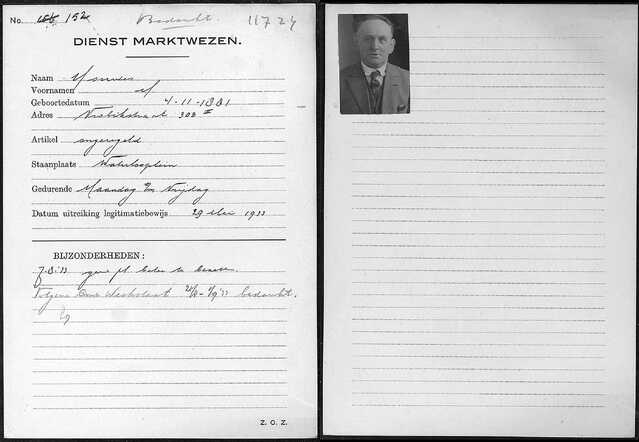 No. 166 152 Bedankt 11724
DIENST MARKTWEZEN.
Naam Monnies
Voornamen M
Geboortedatum 4-11-1881
Adres 308 II
Artikel ongeregeld
Staanplaats Waterlooplein
Gedurende Maandag t/m Vrijdag
Datum uitreiking legitimatiebewijs 29 Mei 1933
BIJZONDERHEDEN:
7-8-'33 geen pl. te
Volgens Weekstaat 28/8 - 2/9 '33 bedankt.
Z. O. Z.